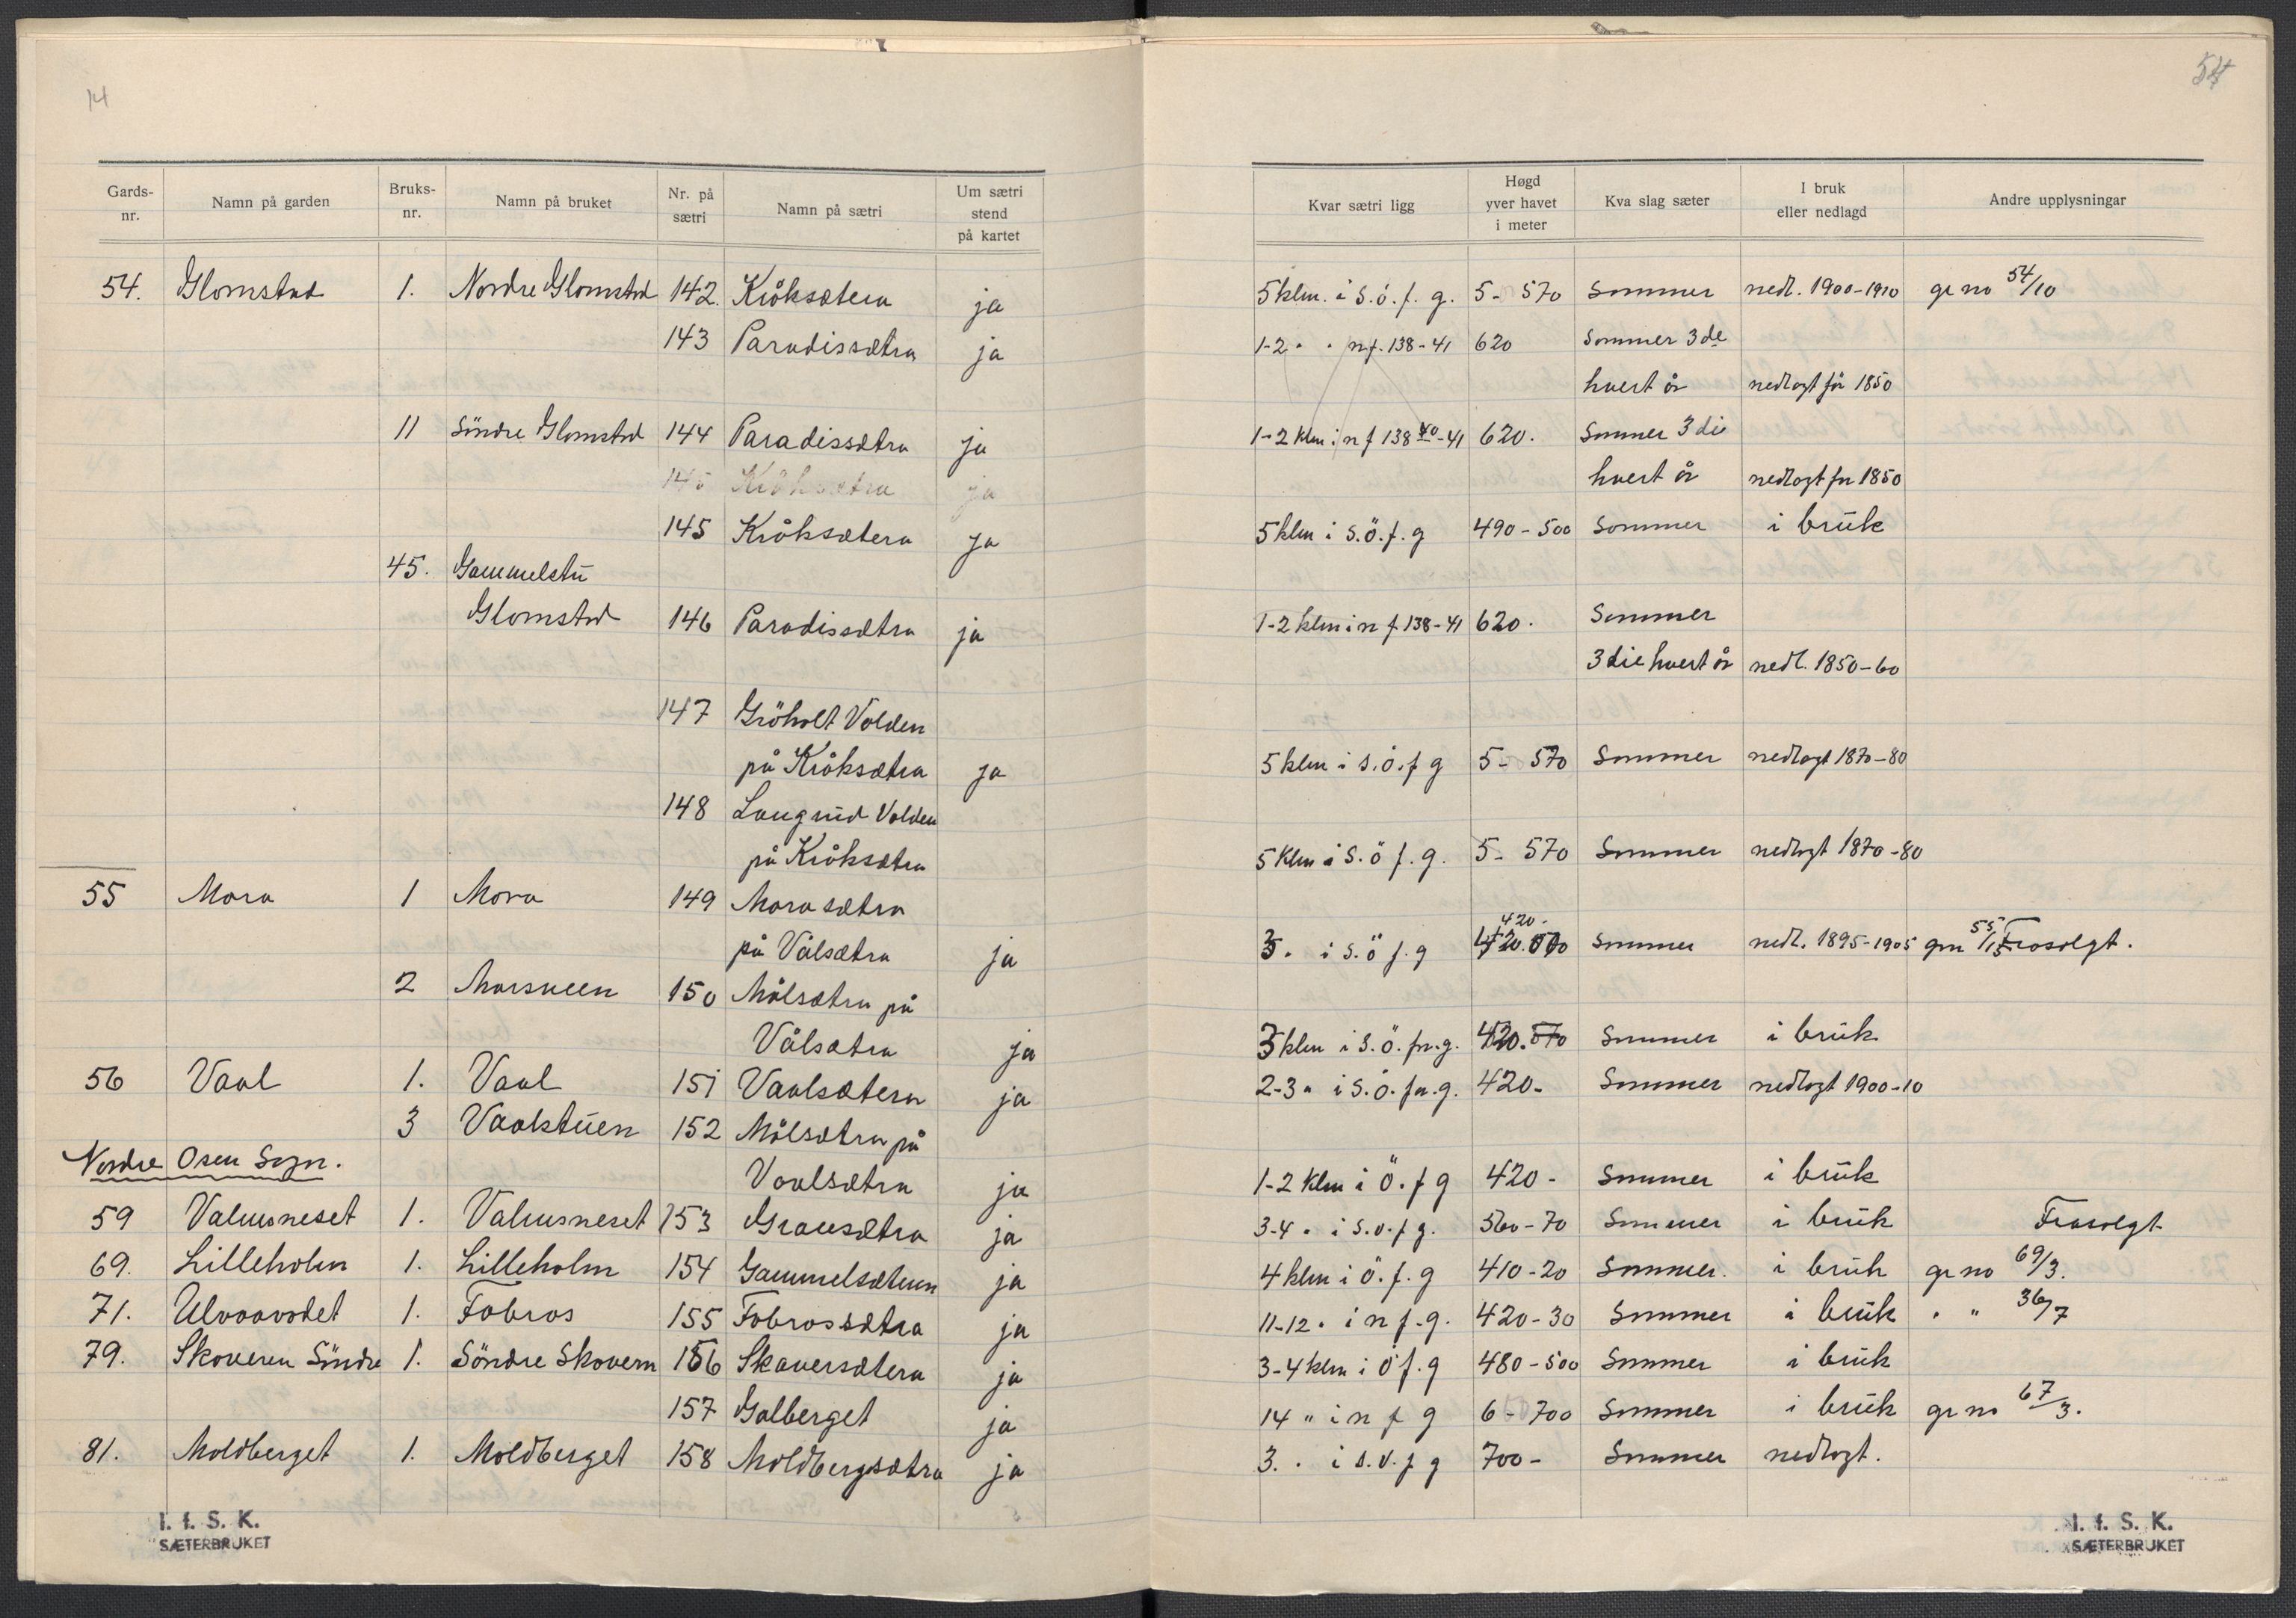 14
54
Gards-nr. Namn på garden Bruks-nr. Namn på bruket Nr. på sætri Namn på sætri Um sætri stend på kartet Kvar sætri ligg Høgd yver havet i meter Kva slag sæter I bruk eller nedlagd Andre upplysningar
54. Glomstad 1. Nordre Glomstad 142. Kråksætera ja 5 klm. i s.ö.f.g. 5- 570 Sommer nedl. 1900-1910 gr no 54/10
143 Paradissætra ja 1-2 " " n.f. 138-41 620 Sommer 3de
hvert år nedlagt får 1850
11 Söndre Glomstad 144 Paradissætra ja 1-2 klm i n f 138 40-41 620. Sommer 3die
145 Kråksætra ja hvert år nedlagt fr 1850
145 Kråksætera ja 5 klm i S.ö.f.g 490-500 Sommer i brük
45. Gammelstü
Glomstad 146 Paradissætra ja 1-2 klm i n f. 138-41 620. Sommer
3die hvert år nedl. 1850-60
147 Gröholt Volden
på Kråksætra ja 5 klm i s.ö.f g 5- 570 Sommer nedlagt 1870-80
148 Laugrüd Volden
på Kråksætra 5 klm i S.ö f.g. 5- 570 Sommer nedlagt 1870-80
55 Mora 1 Mora 149 Morasætra
på Vålsætra ja 3 " i S.ö f.g 420- Sommer nedl. 1895-1905 grn 55/15 Frasolgt.
2 Morsveen 150 Målsætra på
Vålsætra ja 3 klm i S.ö.fr.g. 420. Sommer i brük
56 Vaal 1. Vaal 151 Vaalsætera ja 2-3 " i S.ö.fr.g. 420- Sommer nedlagt 1900-10
3 Vaalstüen 152 Målsætra på
Nordre Osen Sogn.
Vaalsætra ja 1-2 klm i ö.f g 420- Sommer i brük
59 Valmsneset 1. Valmsneset 153 Gransætra ja 3-4 " i s.v.f g. 560-70 Sommer i brük Frasolgt
69. Lilleholm 1. Lilleholm 154 Gammelsætern ja 4 klm i ö.f.g 410-20 Sommer. i brük gr no 69/3.
71. Ulvaavodet 1. Fabros 155 Fabrossætra ja 11-12 " i n f.g. 420-30 Sommer i brük " " 36/7
79. Skoveren Söndre 1. Söndre Skovern 156 Skaversætera ja 3-4 klm i ö f.g 480-500 Sommer i brük
157 Galberget ja 14 " i n f g 6-700 Sommer i brük gr no 67/3.
81. Moldberget 1. Moldberget 158 Moldbergsætra ja 3. " i s.v.f g 700- Sommer nedlagt.
I. f. S. K.
SÆTERBRUKET
I. f. S. K.
SÆTERBRUKET